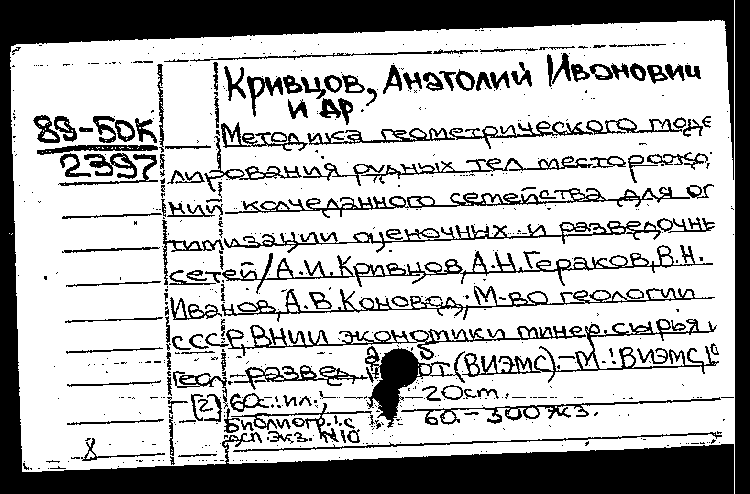 Кривцов, Анатолий Иванович
и др
89-50К
2397
Методика геометрического моде
лирования рудных тел месторожд
ний колчеданного семейства для оп
тимизации оценочных и разведочны
сетей/А.И.Кривцов, А.Н.Гераков, В.Н.
Иванов, А.В.Коновод; М-во геологии
СССР, ВНИИ экономики минер. сырья и
геол.-развед. (ВИЭМС).-М.:ВИЭМС, 19
[2] 60с.:ил.; 20см.
Библиогр.: с
60.- 300экз.
дсп экз. N10
8